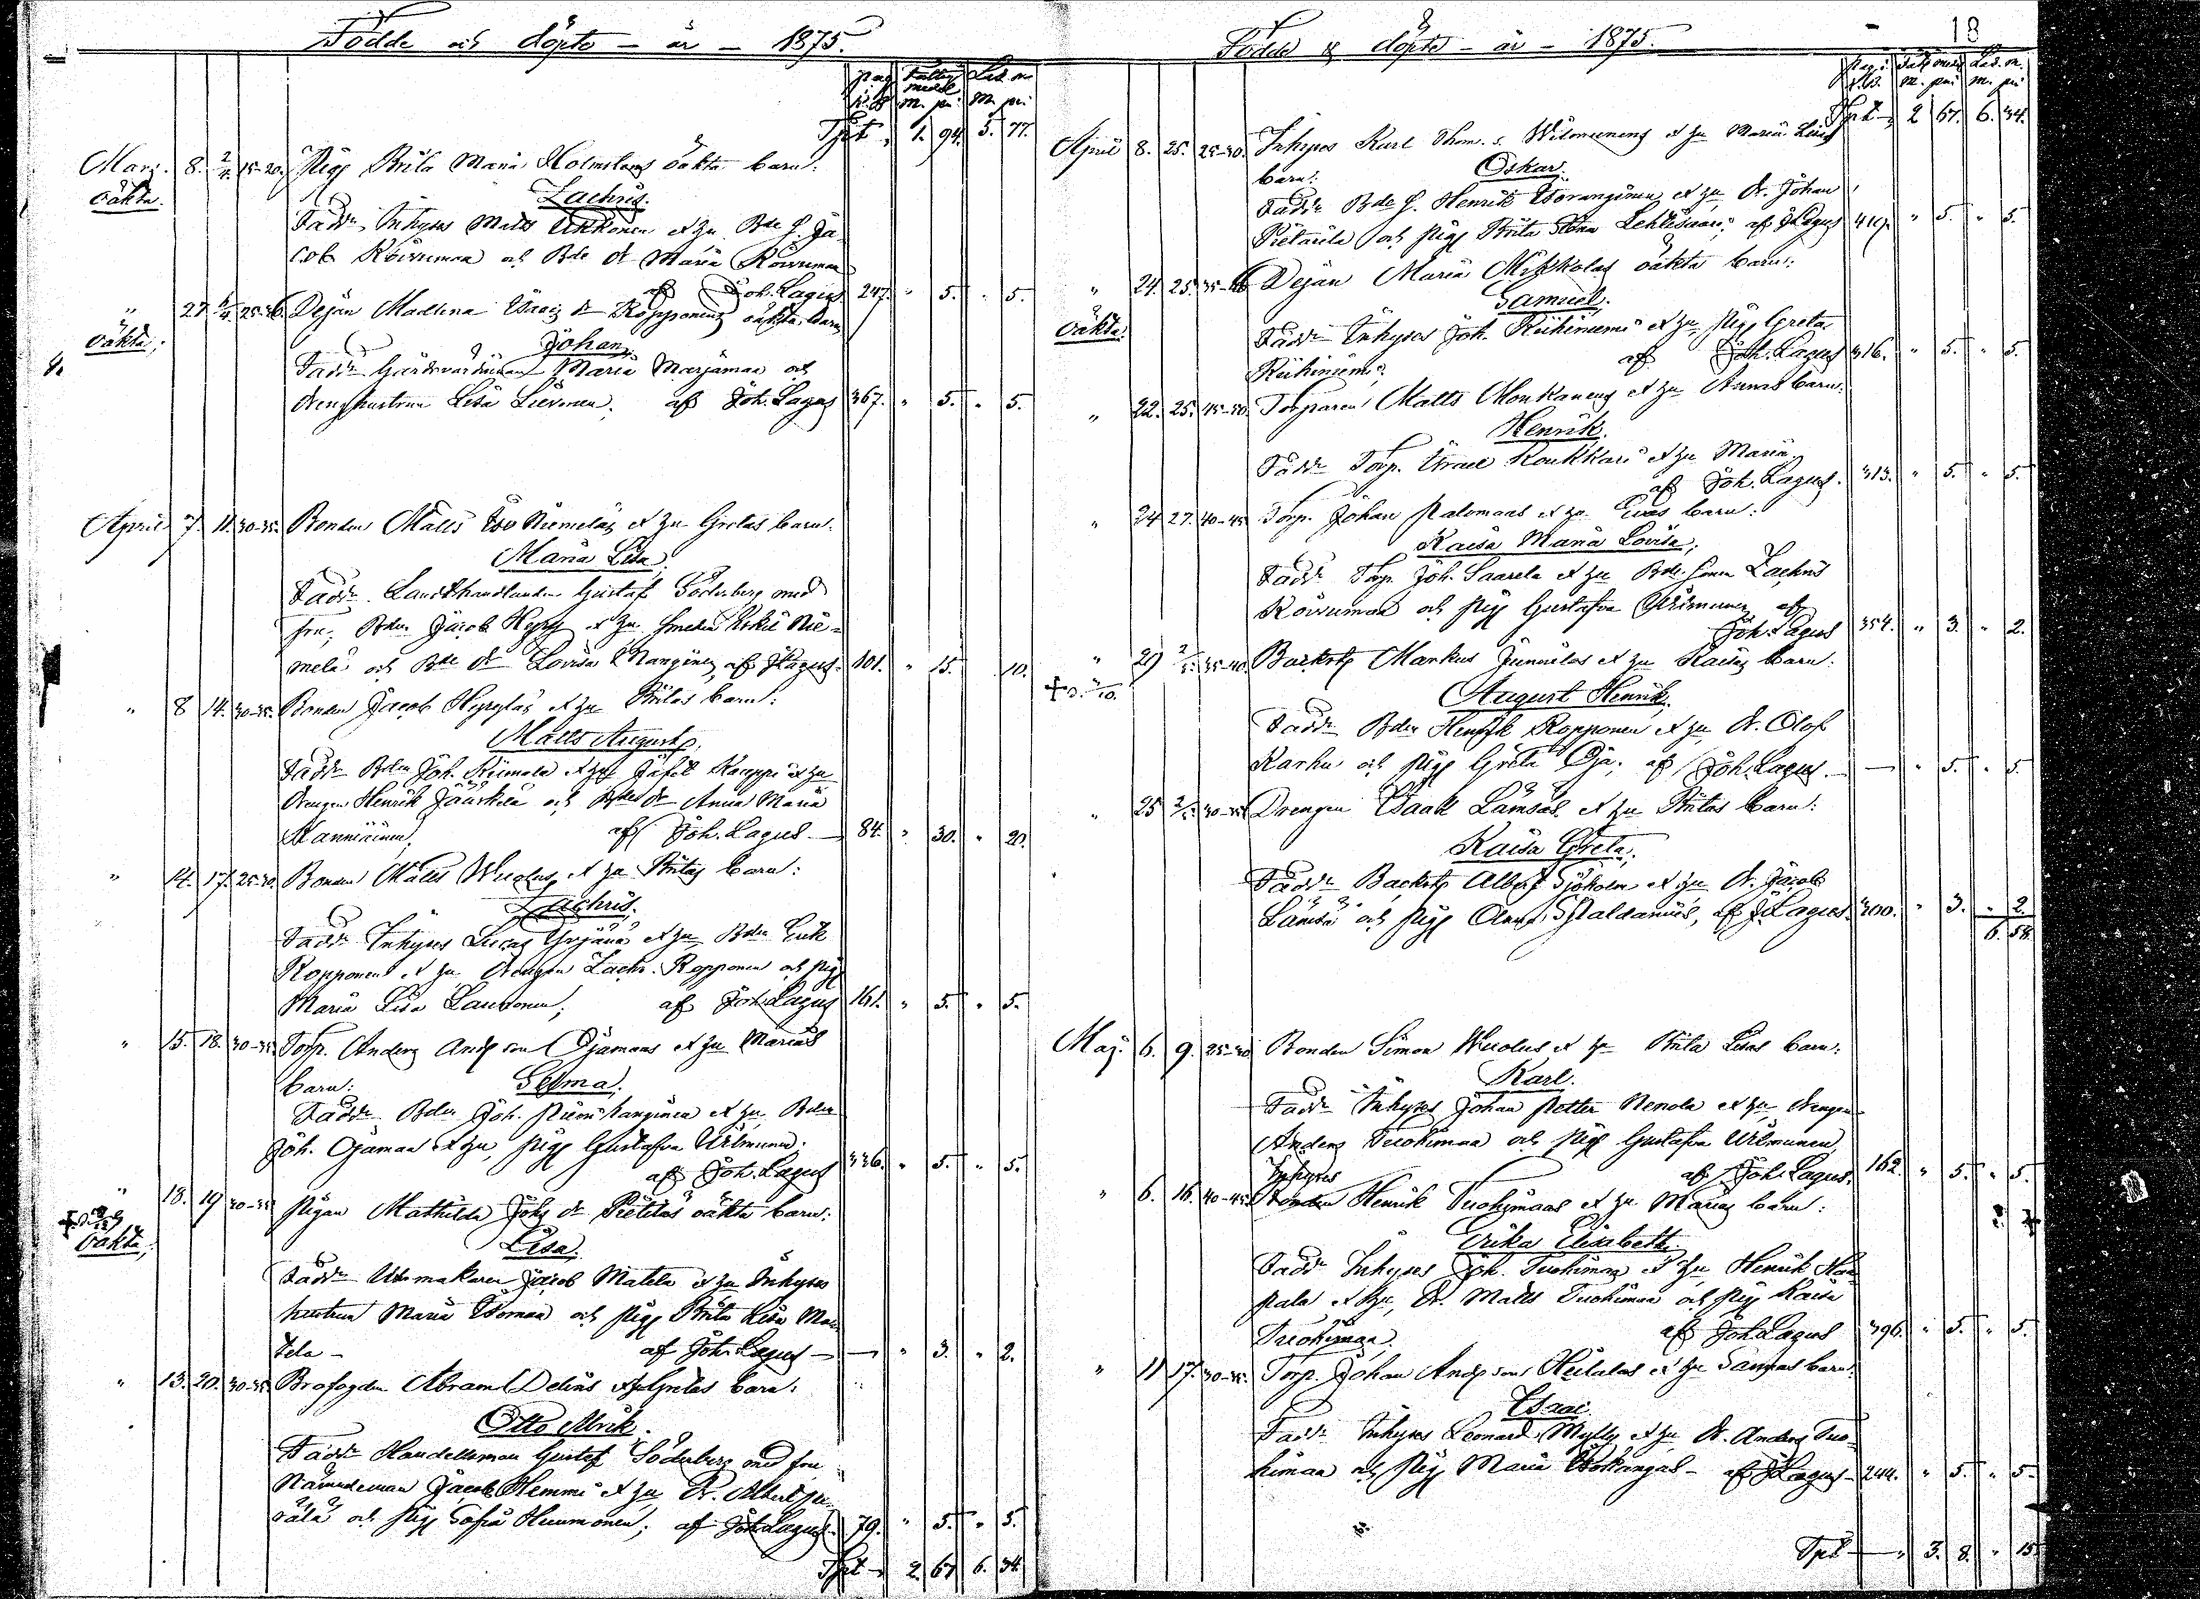 Födde och döpte - år - 1875.
pag. i K.B. Fattig medel Led. m.
m. pi. m. pi.
Tspt 1. 94. 5. 77.
Mars. 8. 2/4. 15-20. Pig. Brita Maria Holmst oäkta barn:
oäkta. Zachris.
Fadd: Inhyses Matts Ukkonen & hu. Bde s. Ja-
cob Koivumaa och Bde dr Maria Koivumaa
af Joh. Lagus 247. " 5. " 5.
" 27 25-26. Dejan Madlena Isacs dr Ropponens oäkta barn
oäkta; Johan,
Fadd: Gårdsvardinnan Maria Marjamaa och
drenghustrun Lisa Liermen. af Joh. Lagus 367. " 5. " 5.
April 7. 11. 30-35. Bonden Matts Iso Niemeläs & hu Gretas barn.
Maria Lisa.
Fadd: Landthandlanden Gustaf Söderberg med
fru, Bden Jacob Hyry & hu. Smeden Erkki Nie-
melä och Bde dr Lovisa Nanginen, af J Lagus. 101. " 15. 10.
" 8 14. 30-35. Bonden Jacob Hyryläs & hu Britas barn:
Matts August.
Fadd: Bden Joh. Niemela & hu Jafet Kauppi & hu
drengen Henrik Jääskelä och Bdes dr Anna Maria
Kanniainen, af Joh. Lagus 84. " 30. " 20.
" 14. 17. 25-30. Bonden Matts Wuolus & hu Britas barn:
Zachris.
Fadd: Inhyses Lucas Yrjänä & hu Bden Erik
Ropponens & hu drengen Zachr. Ropponen och pig
Maria Lisa Lauronen; af Joh. Lagus 161. " 5. " 5.
" 15. 18. 30-35. Torp. Anders Anders son Ojamaas & hu Marias
barn: Selma.
Fadd: Bden Joh. Pieni Nanginen & hu Bden
Joh. Ojamaa & hu, pig. Gustafva Urbmunen.
af Joh. Lagus 336. " 5. " 5.
" 18. 19 30-35 Pigan Mathilda Johs dr Pietiläs oäkta barn:
oäkta; Lisa.
Fadd: Urmakaren Jacob Matela & hu Inhyses
hustrun Maria Isomaa och pig Brita Lisa Ma-
tela - af Joh. Lagus - " 3. " 2.
" 13. 20. 30-35 Brofogden Abram Delins & hu Gretas barn:
Otto Alrik.
Fadd: Handelsman Gustaf Söderberg med fru
Nämndeman Jacob Hemmi & hu Dr. Albert Pe-
rälä och pig Sofia Huumonen; af Joh. Lagus. 79. " 5. " 5.
Tspt 2. 67 6. 34.
Födde & döpte - år - 1875. 18
pag. i K.B. Fatt. medel Led. m.
m. pi. m. pi.
Tspt 2 67. 6. 34.
April 8. 25. 25-30. Inhyses Karl Thom. s. Wilmunens & hu Maria Lisas
barn: Oskar.
Fadd: Bde s. Henrik Isonanginen & hu dr. Johan
Pietarila och pig Brita Stina Lehtisaari; af J Lagus 419. " 5. " 5.
" 24. 25. Dejan Maria Mikkolas oäkta barn:
oäkta. Samuel.
Fadd: Inhyses Joh. Riihiniemi & hu, pig Greta
Riihiniemi; af Joh. Lagus 316. " 5. " 5.
" 22. 25. 45-50. Torparen Matts Monkanens & hu Annas barn:
Henrik.
Fadd: Torp. Israel Koukkari & hu Maria.
af Joh. Lagus. 313. " 5. " 5.
" 24 27. 40-45 Torp. Johan Palomaas & hu Evas barn:
Kaisa Maria Lovisa;
Fadd: Torp. Joh. Saarela & hu Bde sonen Zachris
Koivumaa och pig Gustafva Urbmunen af
Joh. Lagus 354. " 3. " 2.
" 29 2/5. 35-40. Backstg Markus Junnilas & hu Kaisas barn:
August Henrik.
Fadd: Bden Henrik Ropponen & hu Dr. Olof
Karhu och pig Greta Oja; af Joh. Lagus. - " 5. " 5.
" 25 2/5. 30-35 Drengen Isaak Lämsäs & hu Britas barn:
Kaisa Greta.
Fadd: Backstg Albert Sjöholm & hu Dr. Jacob
Lämsä och pig Anna Paldanius, af J. Lagus. 300. " 3. " 2.
6. 58.
Maj. 6. 9. 25-30 Bonden Simon Wuolus & hu Brita Lisas barn:
Karl.
Fadd: Inhyses Johan Petter Nenola & hu, drengen
Anders Tuohimaa och pig Gustafva Urbmunen,
af Joh. Lagus. 162. " 5. " 5.
Inhyses
" 6. 16. 40-45 Bonden Henrik Tuohimaas & hu Marias barn:
Erika Elisabeth.
Fadd: Inhyses Joh. Tuohimaa & hu Henrik Haa-
pala & hu, Dr. Matts Tuohimaa och pig Kaisa
Tuohimaa, af Joh Lagus 396. " 5. " 5.
" 11 17. 30-35. Torp. Johan Anders sons Heilalas & hu Sannas barn:
Isaac.
Fadd: Inhyses Leonard Mylly & hu Dr. Anders Tuo-
himaa och pig Maria Isokangas - af J Lagus - 244. " 5. " 5.
Tspt - 3. 8. " 15.